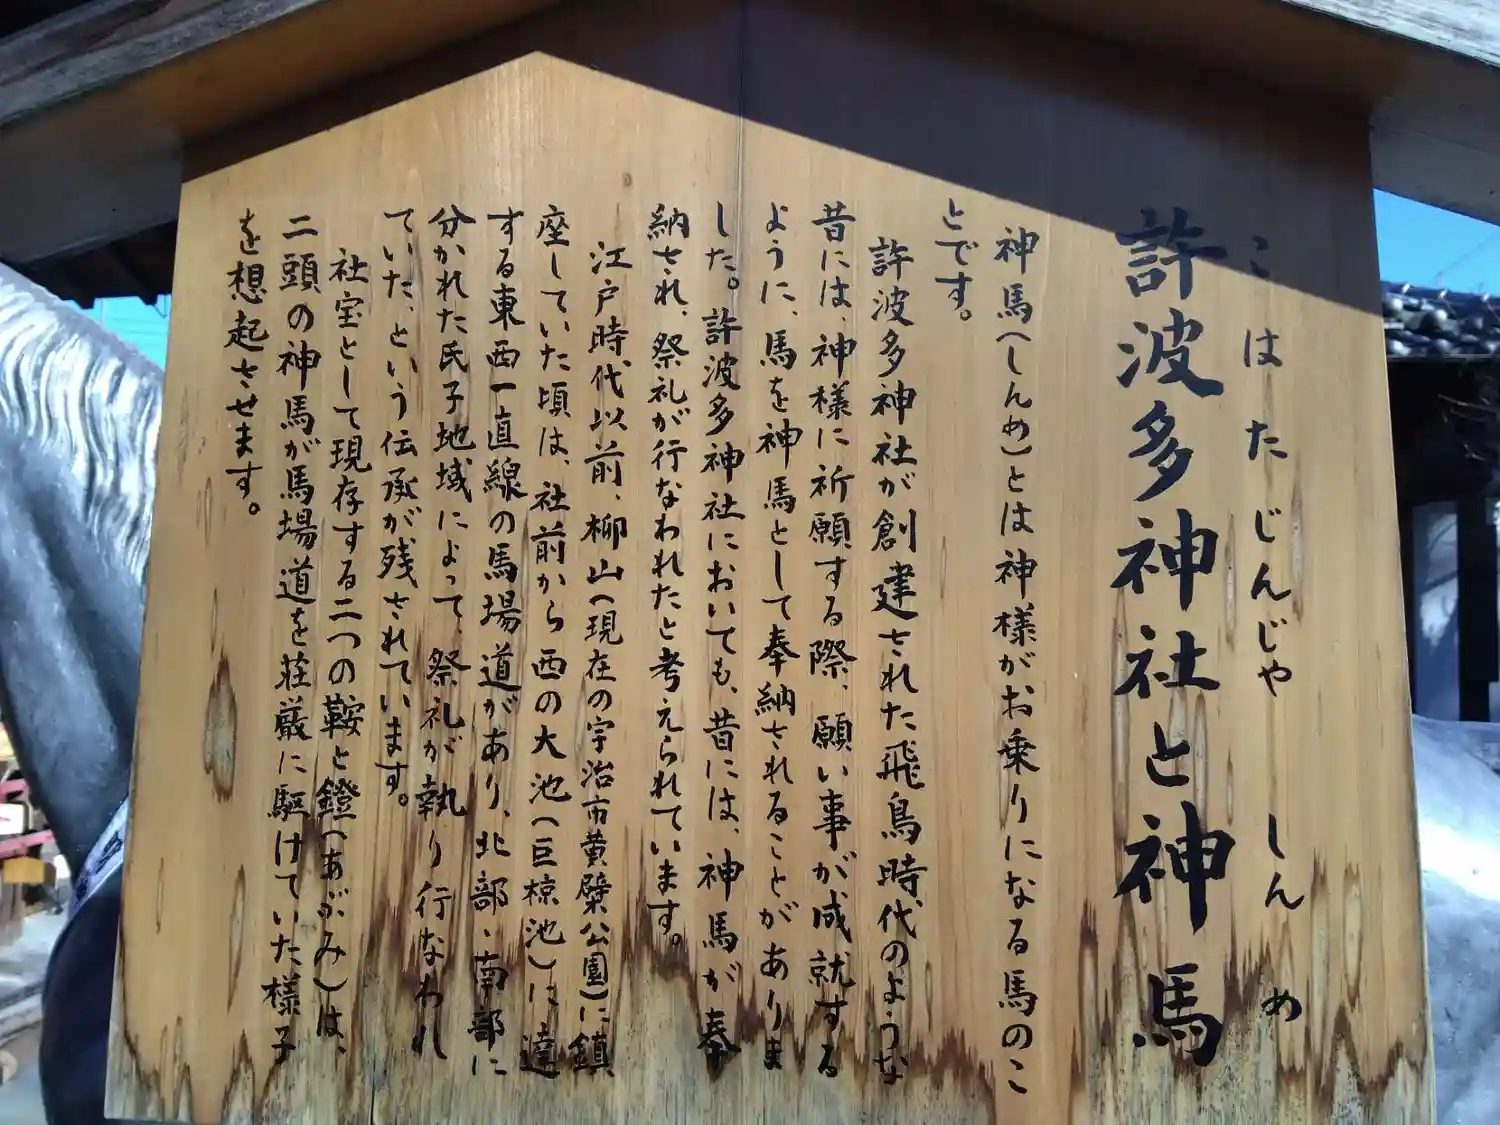 こはたじんじゃ　しんめ
許波多神社と神馬
神馬(しんめ)とは神様がお乗りになる馬のこ
とです。
許波多神社が創建された飛鳥時代のような
昔には、神様に祈願する際、願い事が成就する
ように、馬を神馬として奉納されることがありま
した。許波多神社においても、昔には、神馬が奉
納され、祭礼が行なわれたと考えられています。
江戸時代以前、柳山(現在の宇治市黄檗公園)に鎮
座していた頃は、社前から西の大池(巨椋池)に達
する東西一直線の馬場道があり、北部、南部に
分かれた氏子地域によって、祭礼が執り行なわれ
ていた、という伝承が残されています。
社宝として現存する二つの鞍と鐙(あぶみ)は、
二頭の神馬が馬場道を荘厳に駆けていた様子
を想起させます。